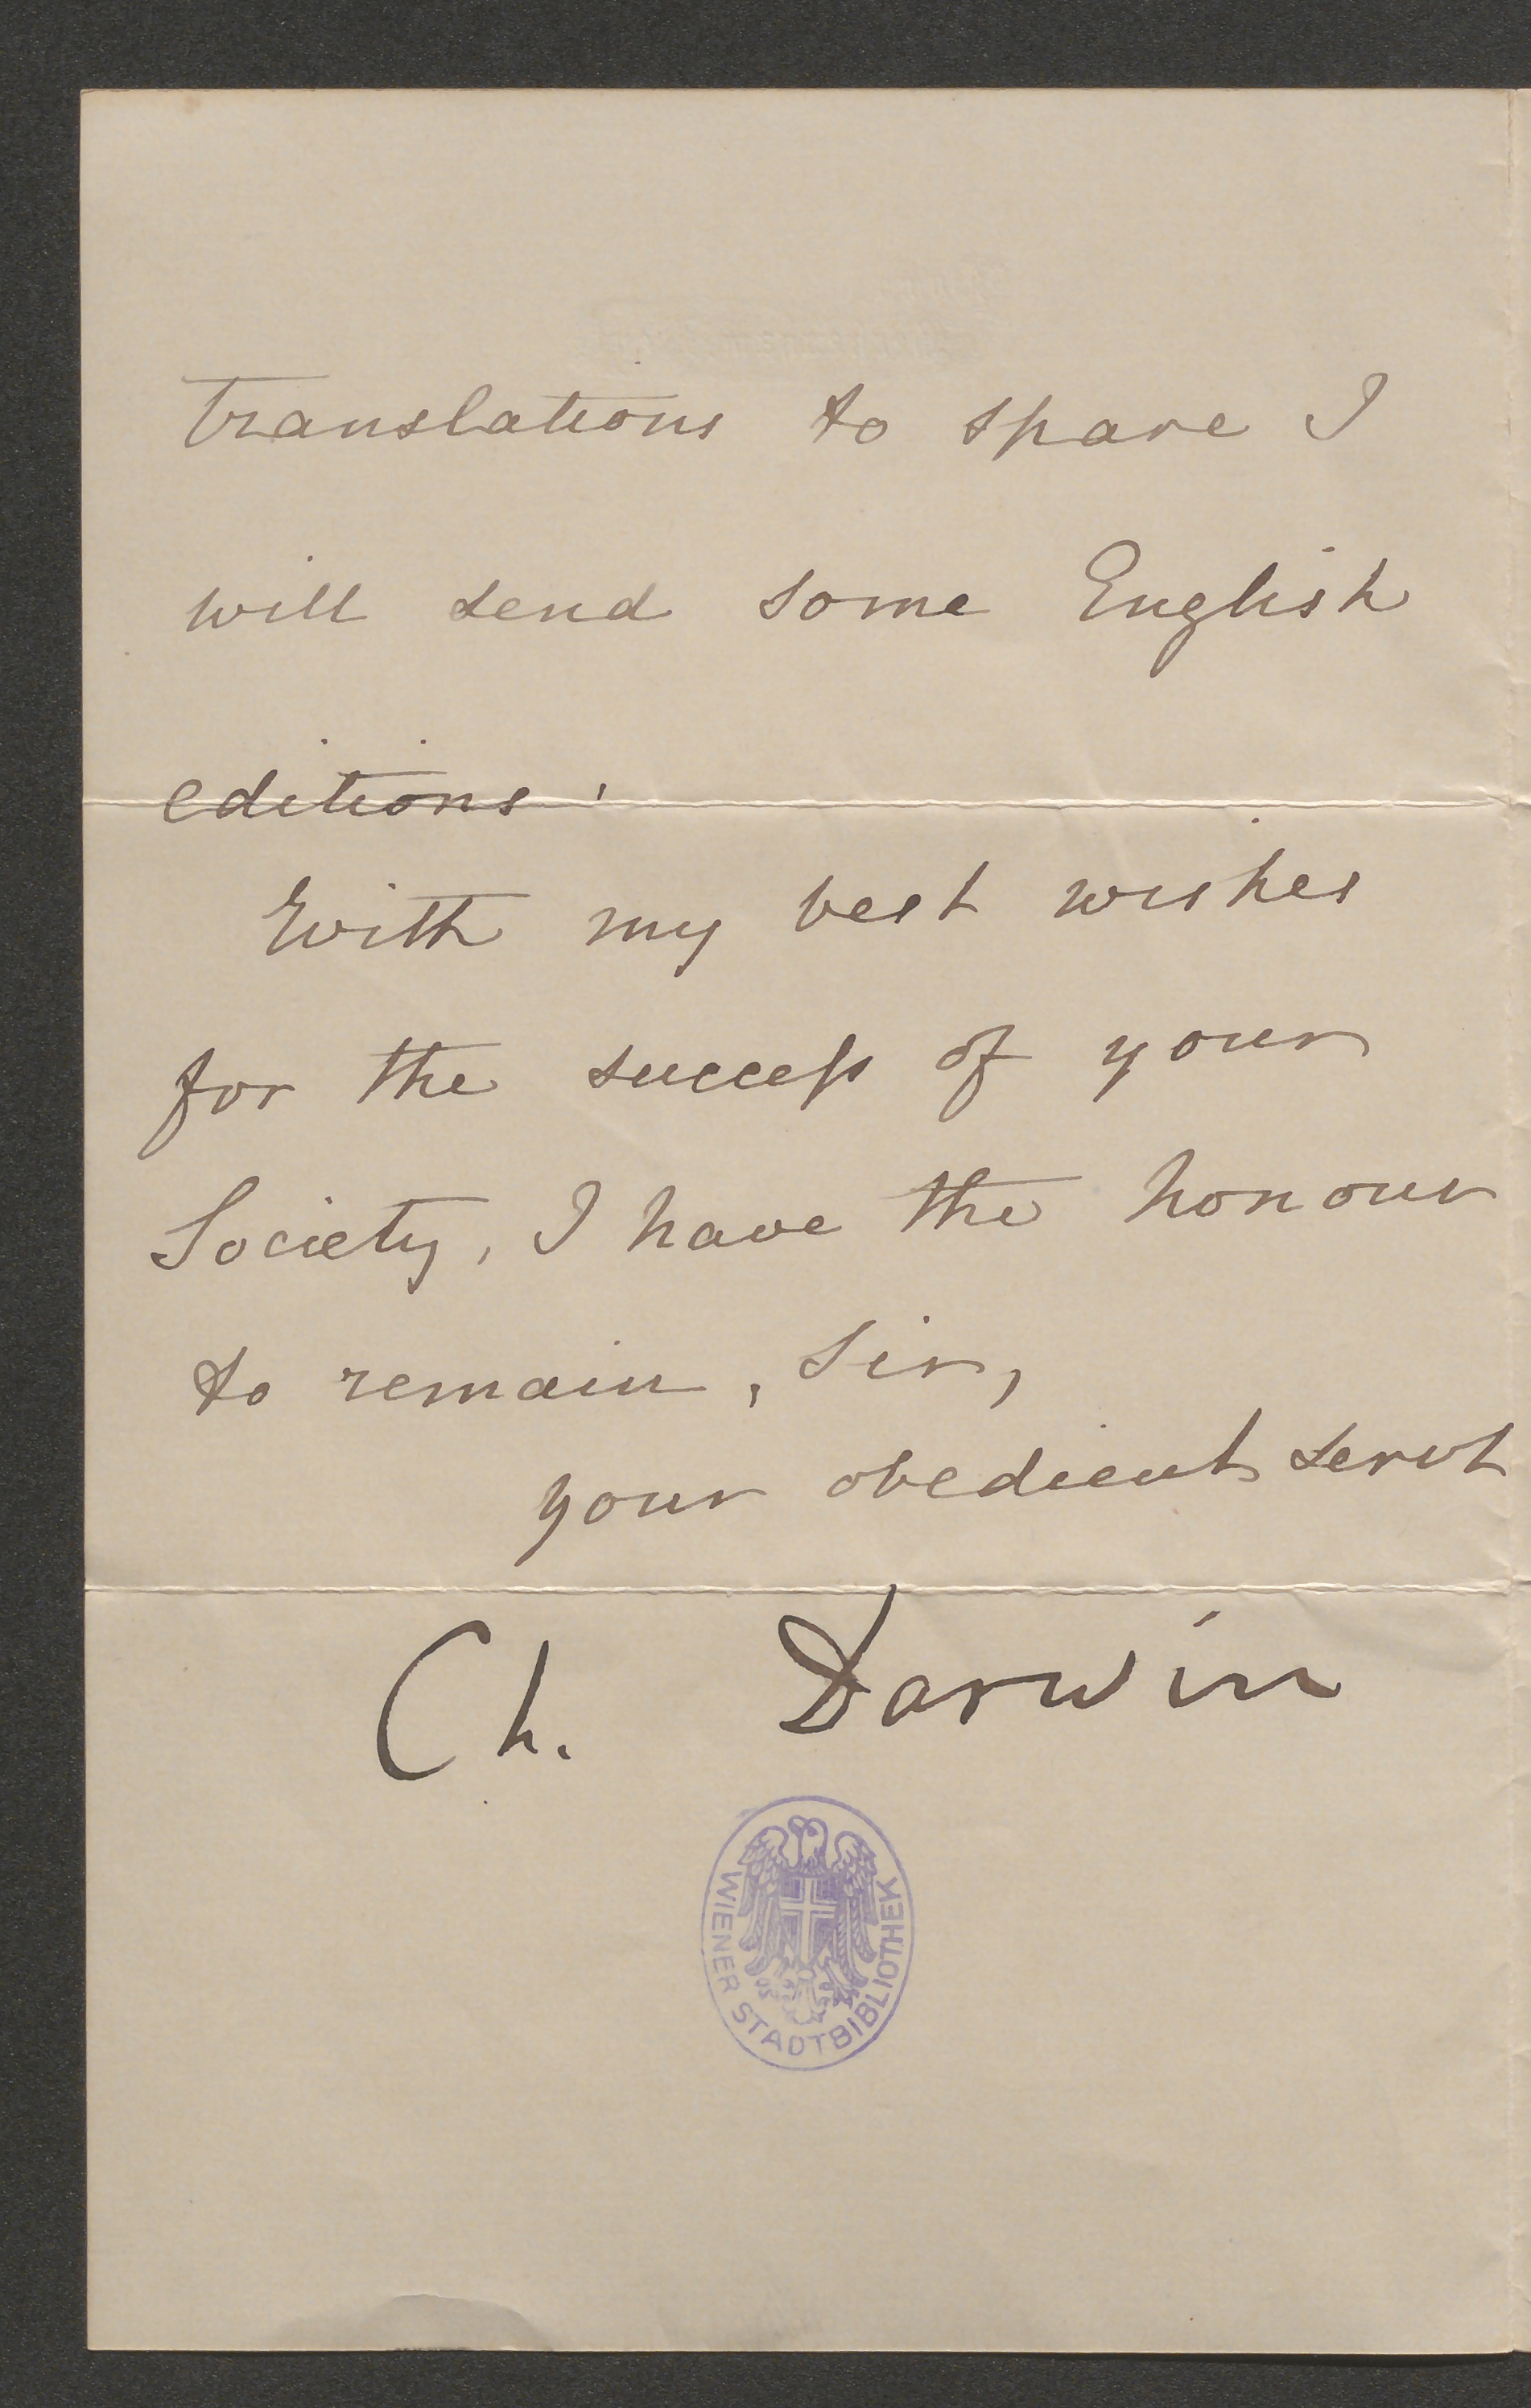 translations to spare I
will send some English
editions.
With my best wishes
for the success of your
Society, I have the honour
to remain, Sir,
your obedient servt
Ch. Darwin
WIENER STADTBIBLIOTHEK